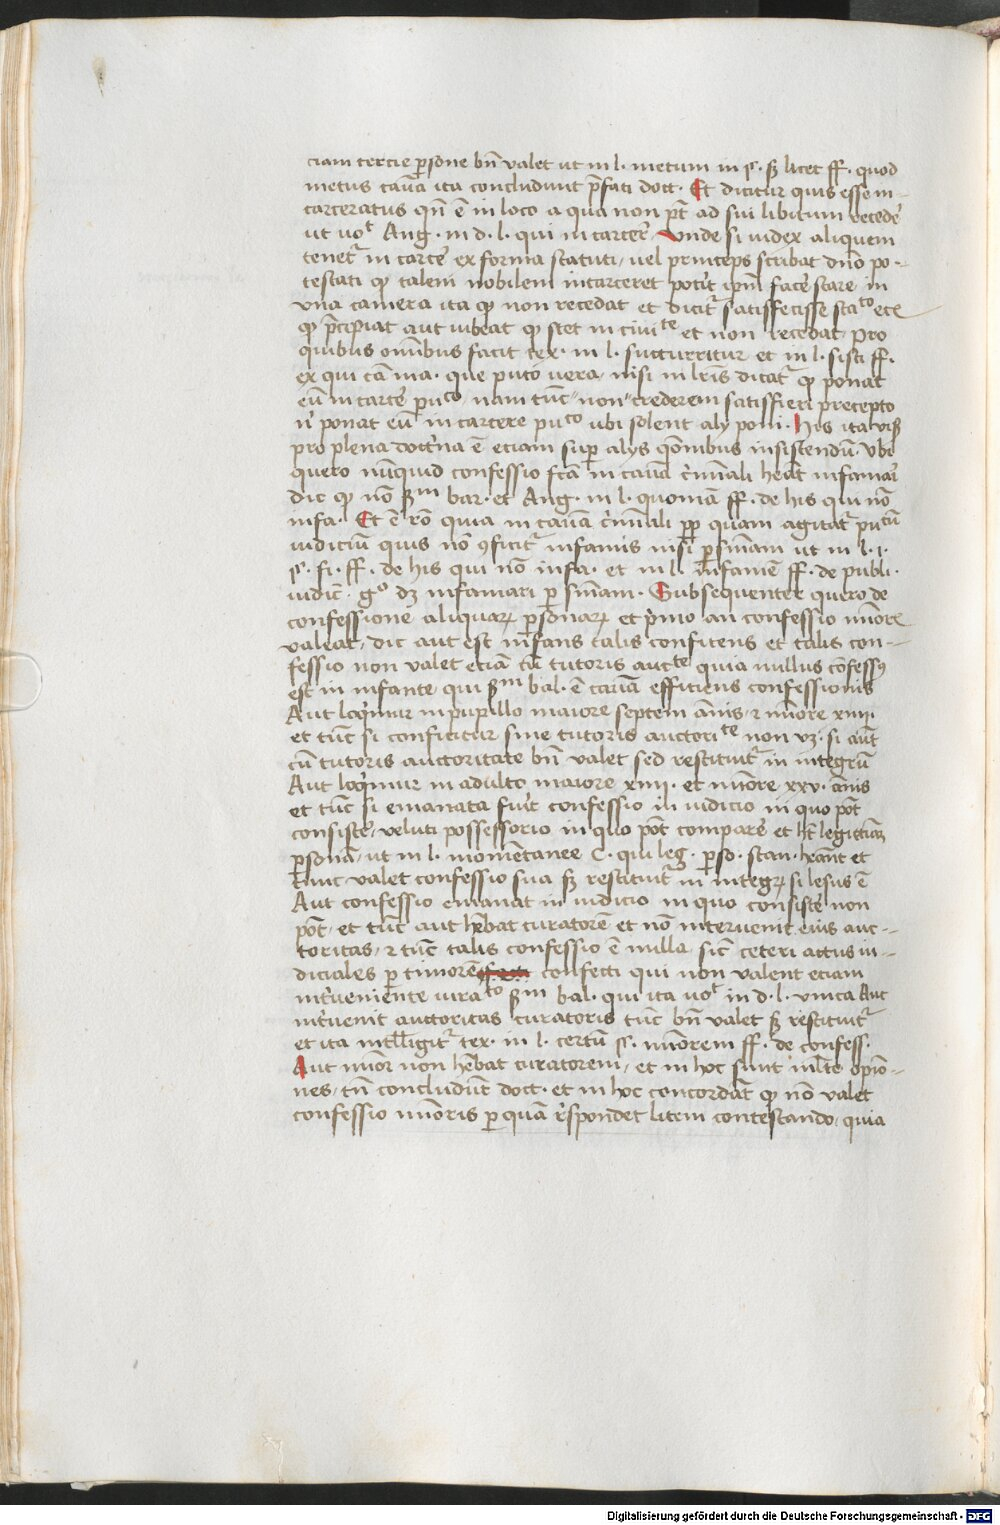 ciam tercie ꝑsone bn̄ valet ut in l. metum in §. sꝫ licet ff. quod
metus cau̅a ita concludunt p̅fati doct. Et dicitur quis esse in-
carceratus qn̄ ē in loco a quo non pt̄ ad sui libitum recede̅
ut uoᵗ Ang. in d. l. qui in carcer̅. Vnde si iudex aliquem
tenet̅ in carce̅ ex forma statuti, uel princeps scribat dn̅o po-
testati ꝙ talem nobilem incarceret potit̅ ipm̅ face̅ stare in
vna camera ita ꝙ non recedat et dicit̅ satisfecisse staᵗᵒ etc
ꝙ p̅cipiat aut iubeat ꝙ stet in ciuiᵗᵉ et non recedat, pro
quibus om̅ibus facit tex. in l. succurritur et in l. sisti ff.
ex qui ca̅ ma. que puto uera, nisi in lr̅is dicat̅ ꝙ ponat
eu̅ in carce̅ puᶜᵒ, nam tu̅c non crederem satisfieri precepto
n̅ ponat eu̅ in carcere puᶜᵒ ubi solent alij poni. His ita visꝭ
pro plena doct̅na ē eciam suꝑ alijs q̅onibus insistendu̅. Vbi
quero nu̅nquid confessio fc̅a in cau̅a c̅minali heat̅ infamar̅
dic ꝙ no̅ ẜm bar. et Ang. in l. quonia̅ ff. de his qui no̅
infa. Et ē ro̅ quia in cau̅a c̅minali ꝓp quam agitat̅ puᶜū
iudiciu̅ quis no̅ ꝯficit̅ infamis nisi ꝑ sn̅iam ut in l. 1.
§. fi. ff. de his qui no̅ infa. et in l. infamē ff. de publi.
iudic̅. gᵒ dꝫ infamari ꝑ sn̅iam. Subsequenter quero de
confessione aliquaꝝ ꝑsonaꝝ et p̅mo an confessio mi̅ore
valeat, dic aut est infans talis confitens et talis con-
fessio non valet ecia̅ cu̅ tutoris aucᵗᵉ quia nullus co̅fessꝰ
est in infante, qui ẜm bal. ē cau̅a efficiens confessionis
Aut loq̅mur in pupillo maiore septem a̅nis, ⁊ mi̅ore xiiii.
et tu̅c si conficitur sine tutoris auctoriᵗᵉ non vꝫ. si au̅t
cu̅ tutoris auctoritate bn̄ valet sed restituit̅ in integru̅
Aut loq̅mur in adulto maiore xiiii. et mi̅ore xxv. a̅nis
et tu̅c si emanata fuit̅ confessio in iudicio in quo po̅t
consiste̅, veluti possessorio in quo po̅t compare̅ et ht̅ legittima̅
ꝑsona̅, ut in l. mome̅tanee C. qui leg. ꝑso. stan. hea̅nt et
tunc valet confessio sua sꝫ restituit̅ in integꝝ si lesus ē
Aut confessio emanat in iudicio in quo consiste̅ non
po̅t, et tu̅c aut he̅bat curatore̅ et no̅ interuenit eius auc-
toritas, ⁊ tu̅c talis confessio ē nulla sic̅ ceteri actus iu-
diciales ꝑ timore̅ confecti qui non valent eciam
int̅ueniente iuraᵗᵒ ẜm bal. qui ita uoᵗ in d. l. vnica Aut
int̅uenit auctoritas curatoris tu̅c bn̄ valet sꝫ restituit̅
et ita intll̅igit̅ tex. in l. certu̅ §. mi̅orem ff. de confess.
Aut mi̅or non he̅bat curatorem, et in hoc sunt ml̅te opi̅o-
nes, tn̅ concludu̅t doct. et in hoc concorda̅t ꝙ no̅ valet
confessio mi̅oris ꝑ qua̅ r̅spondet litem contestando, quia
Digitalisierung gefördert durch die Deutsche Forschungsgemeinschaft - DFG